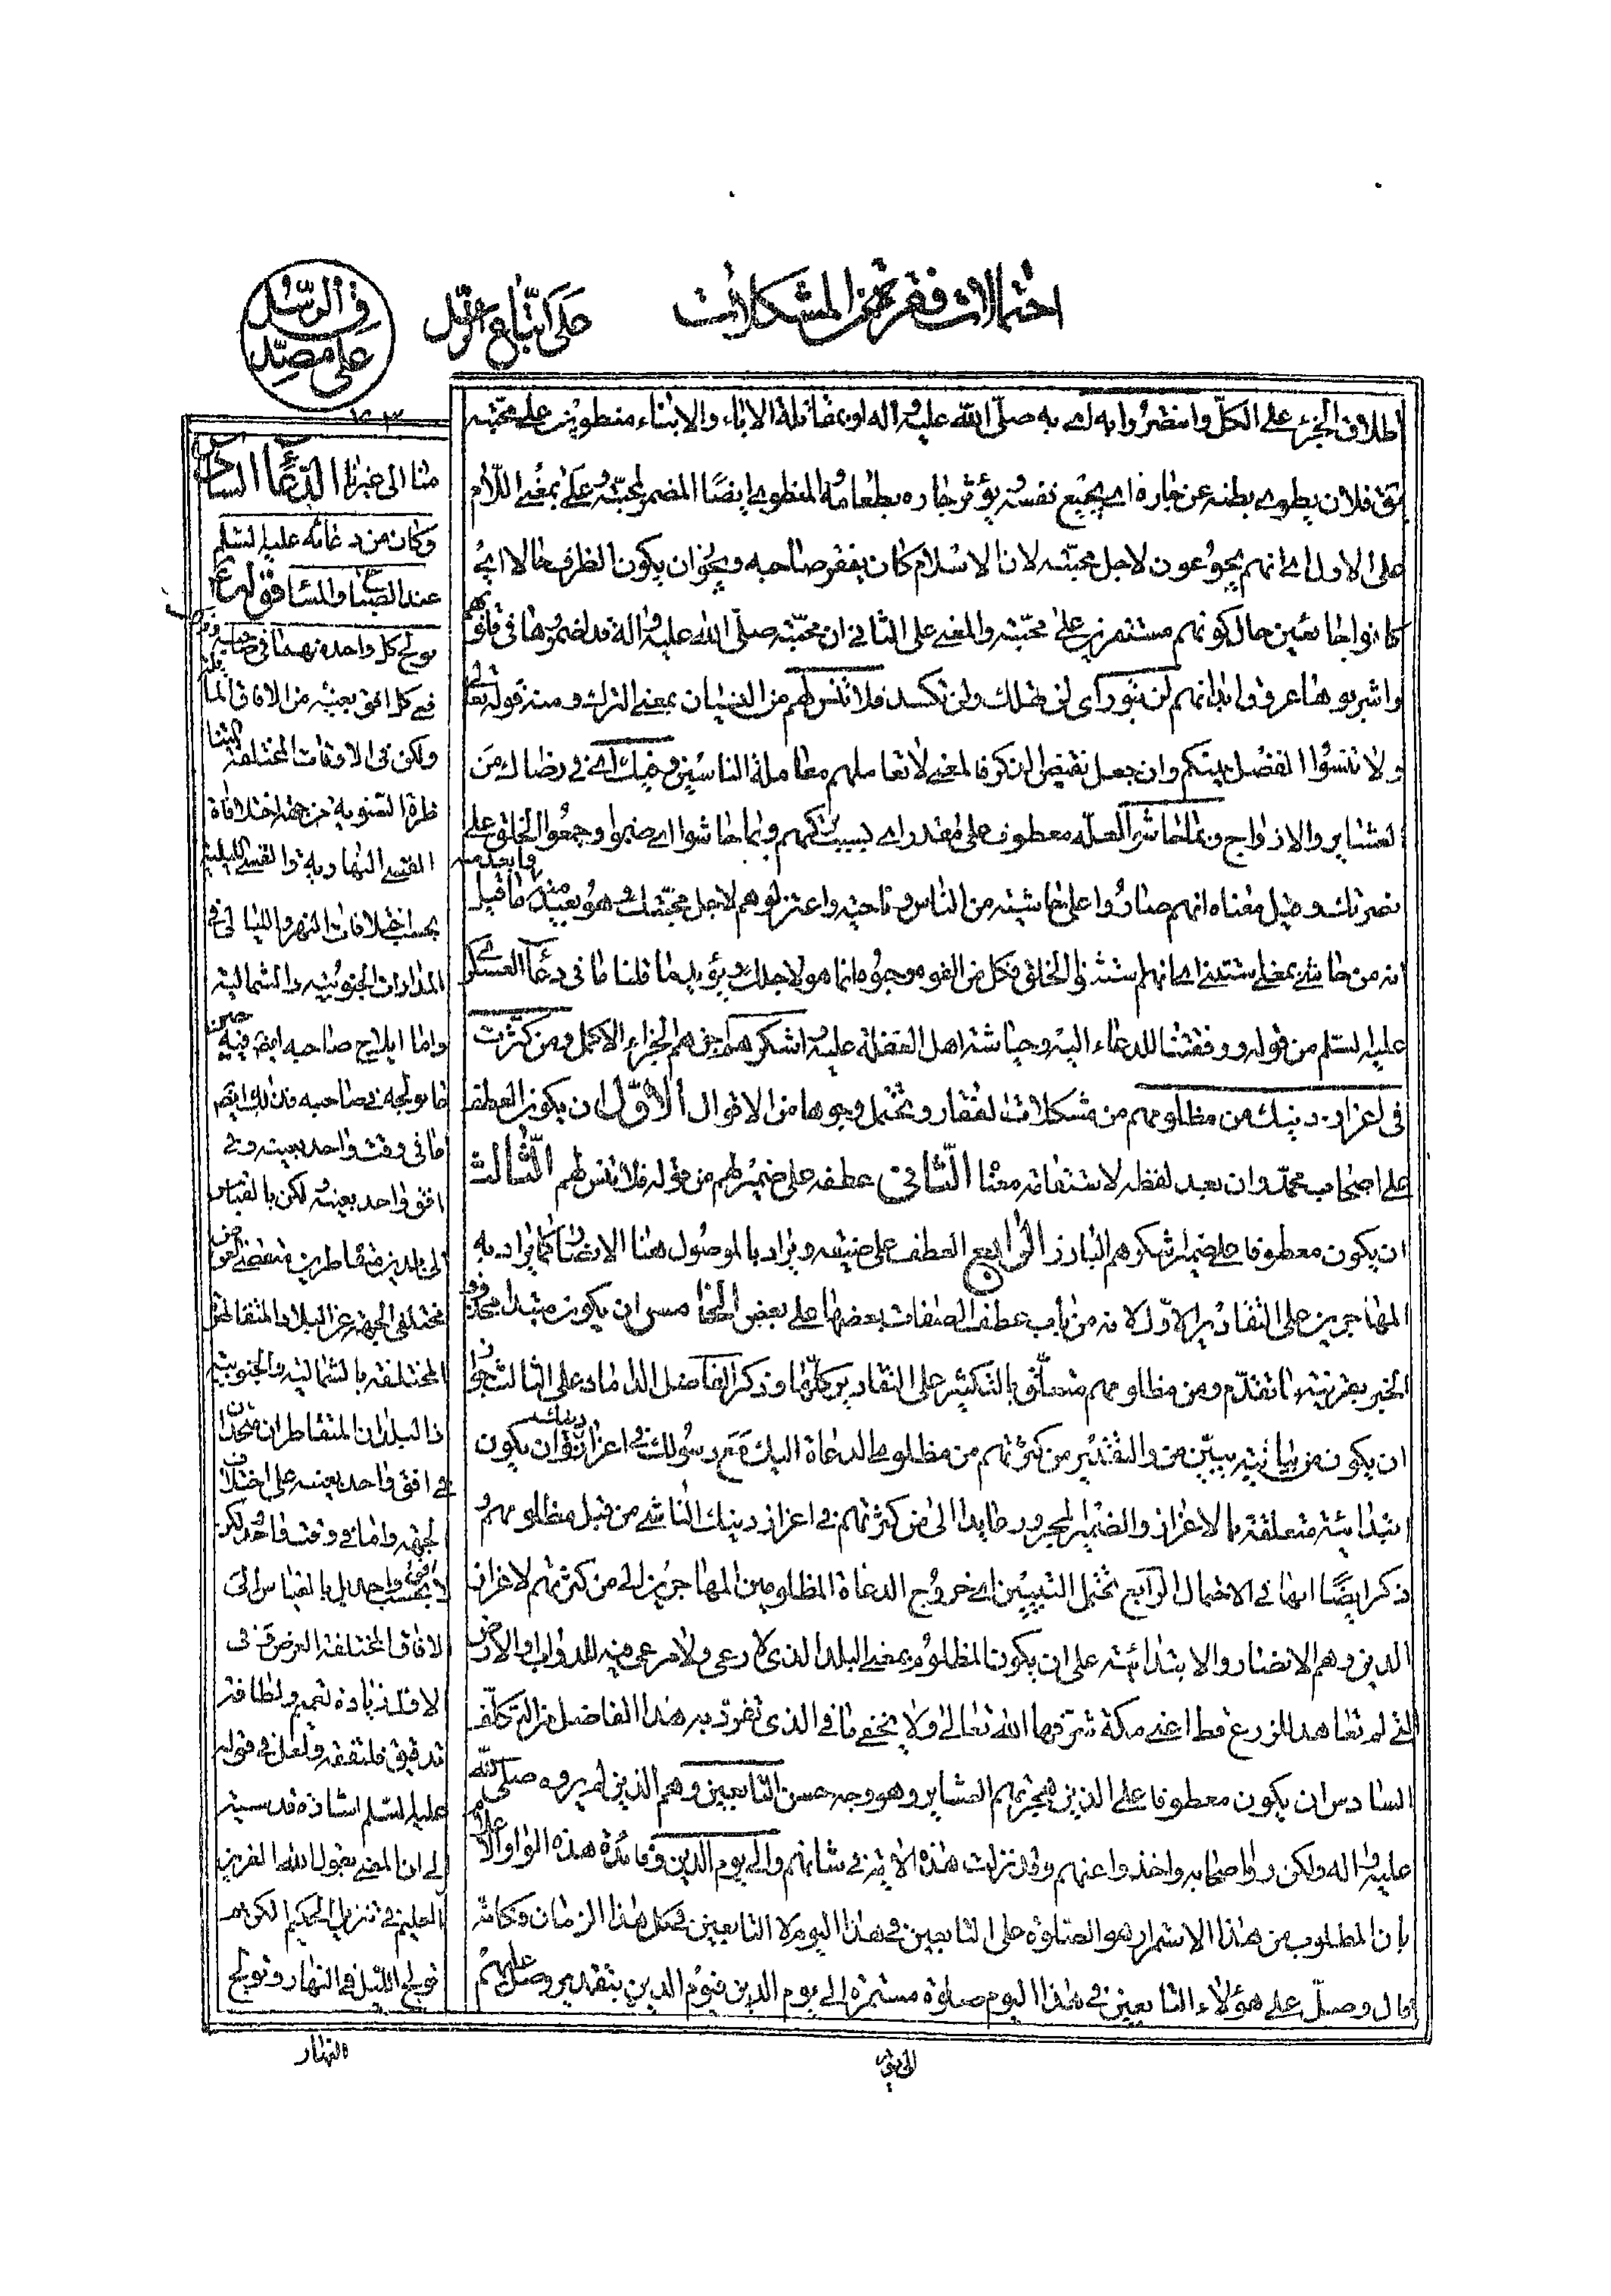 احتمالات فقرة من المشكلات
على اتباع الرسل
في الرسل
على مصدّ
اطلاق الجزء على الكلّ وانتصروا به اى به صلّى الله عليه واله او بمقاتلة الاباء والابناء منطوين على محبّته
يق فلان يطوى بطنه عن جاره اى يجيع نفسه يؤثر جاره بطعامه المنطوى ايضًا المضمر لمحبّته وعلى بمعنى اللّام
على الاول اى انهم يجوعون لاجل محبّته لان الاسلام كان يفقر صاحبه ويجوز ان يكون الظرف حالا اى
كانوا جائعين حال كونهم مستقرين على محبّته والمعنى على الثانى ان محبّته صلّى الله عليه واله قد اضمروها فى قلوبهم
واشربوها عروق ابدانهم لن تبور اى لن تهلك ولن تكسد فلا تنس لهم من النسيان بمعنى الترك ومنه قوله تعالى
ولا تنسوا الفضل بينكم وان جعل نقيض الذكر فالمعنى لا تعاملهم معاملة الناسين وفيك اى فى رضاك من
العشاير والازواج وبما حاشوا العلّة معطوف على مقدر اى بسبب تركهم وبما حاشوا اى ضموا وجمعوا الخلق على
نصرتك وقيل معناه انهم صاروا على حاشية من الناس وناحية واعتزلوهم لاجل محبّتك وهو بعيد وابعد منه ما قيل
انه من حاشى بمعنى استثنى اى انهم استثنوا الخلق فكل من الفوه وجبوه انما هو لاجلك ويؤيد ما قلنا ما فى دعاء العسكرى
عليه السلم من قوله ووفقتنا للدعاء اليه وحياشة اهل الغفلة عليه اشكرهم اجزهم الجزاء الاكمل ومن كثّرت
فى اعزاز دينك من مظلومهم من مشكلات الفقار ويحتمل وجوها من الاقوال الاوّل ان يكون العطف
على اصحاب محمّد وان بعد لفظه لاستقامة معناه الثّانى عطفه على ضمير لهم من قوله فلا تنس لهم الثّالث
ان يكون معطوفا على ضمير اشكرهم البارز الرّابع العطف على ضميره ويراد بالموصول هنا الانصار كما يراد به
المهاجرين على التقادير الاوّل لانه من باب عطف الصفات بعضها على بعض الخامس ان يكون مبتدا محذوف
الخبر بقرينة ما تقدّم ومن مظلومهم متعلّق بالتكثير على التقادير كلّها وذكر الفاضل الداماد على الثالث جواز
ان يكون من بيانية يبيّن من والتقدير من كثرتهم من مظلومى الدعاة اليك مع رسولك فى اعزاز دينك وان يكون
ابتدائية متعلقة بالاعزاز والضمير المجرور عايدا الى من كثرتهم فى اعزاز دينك الناشى من قبل مظلومهم و
ذكر ايضًا انها فى الاحتمال الرّابع تحتمل التبيين اى خروج الدعاة المظلومين المهاجرين الى من كثرتهم لاعزاز
الدين وهم الانصار والابتدائية على ان يكون المظلوم بمعنى البلد الذى لا رعى ولا مرعى فيه للدواب والارض
التى لم تعاهد للزرع قط اعنى مكة شرّفها الله تعالى ولا يخفى ما فى الذى تفرّد به هذا الفاضل من التكلّف
السادس ان يكون معطوفا على الذين هجرتهم العشاير وهو وجه حسن التابعين وهم الذين لم يروه صلّى الله
عليه واله ولكن راوا صحابه واخذوا عنهم وقد نزلت هذه الاية فى شانهم والى يوم الدين وفائدة هذه الواو الاعلام
بان المطلوب من هذا الاستمرار هو الصلوة على التابعين فى هذا اليوم لا التابعين فى كل هذا الزمان فكانه
قال وصلّ على هؤلاء التابعين فى هذا اليوم صلوة مستمرة الى يوم الدين فيوم الدين بتقدير وصل عليهم
الى يوم
١٠٣
منا الى خيرنا الدّعاء السادس
وكان من دعائه عليه السلم
عند الصباح والمساء قوله ع
يولج كل واحد منهما فى صاحبه
فى كل افق بعينه من الافاق المائلة
ولكن فى الاوقات المختلفة
من جهة اختلافات
القسى النهارية والقسى الليلية
بحسب اختلافات النهر والليالى فى
المدارات الجنوبية والشمالية
واما ايلاج صاحبه ايضا فيه حين
ما يولجه فى صاحبه فذلك ايضا
اما فى وقت واحد بعينه وفى
افق واحد بعينه لكن بالقياس
الى بلدين متقاطرين متفقى العرض
مختلفى الجهة عن البلاد المتفالقة
المختلفة بالشمالية والجنوبية
ذا البلدان المتقاطران متحدان
فى افق واحد بعينه على اختلاف
الجهة واما فى وقت واحد لكن
لا بحسب افق واحد بل بالقياس الى
الافاق المختلفة العرض فى
الافلة زيادة تعميم ولطافة
تدقيق فلتفقه ولعل فى قوله
عليه السلم اشارة قدسية
الى ان المعنى بقول الله العزيز
العليم فى تنزيله الحكيم الكريم
تولج الليل فى النهار وتولج
النهار